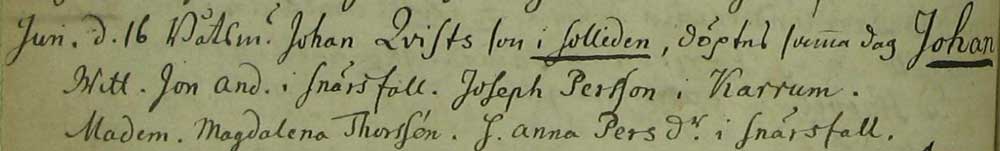 Jun. d. 16 Båtsm:s Johan Qvists son i solleden, döptes sama dag Johan
Witt. Jon And. i snårsfall. Joseph Persson i Karrum.
Madem. Magdalena Thorssón. H. Anna Pers Dr. i snårsfall.